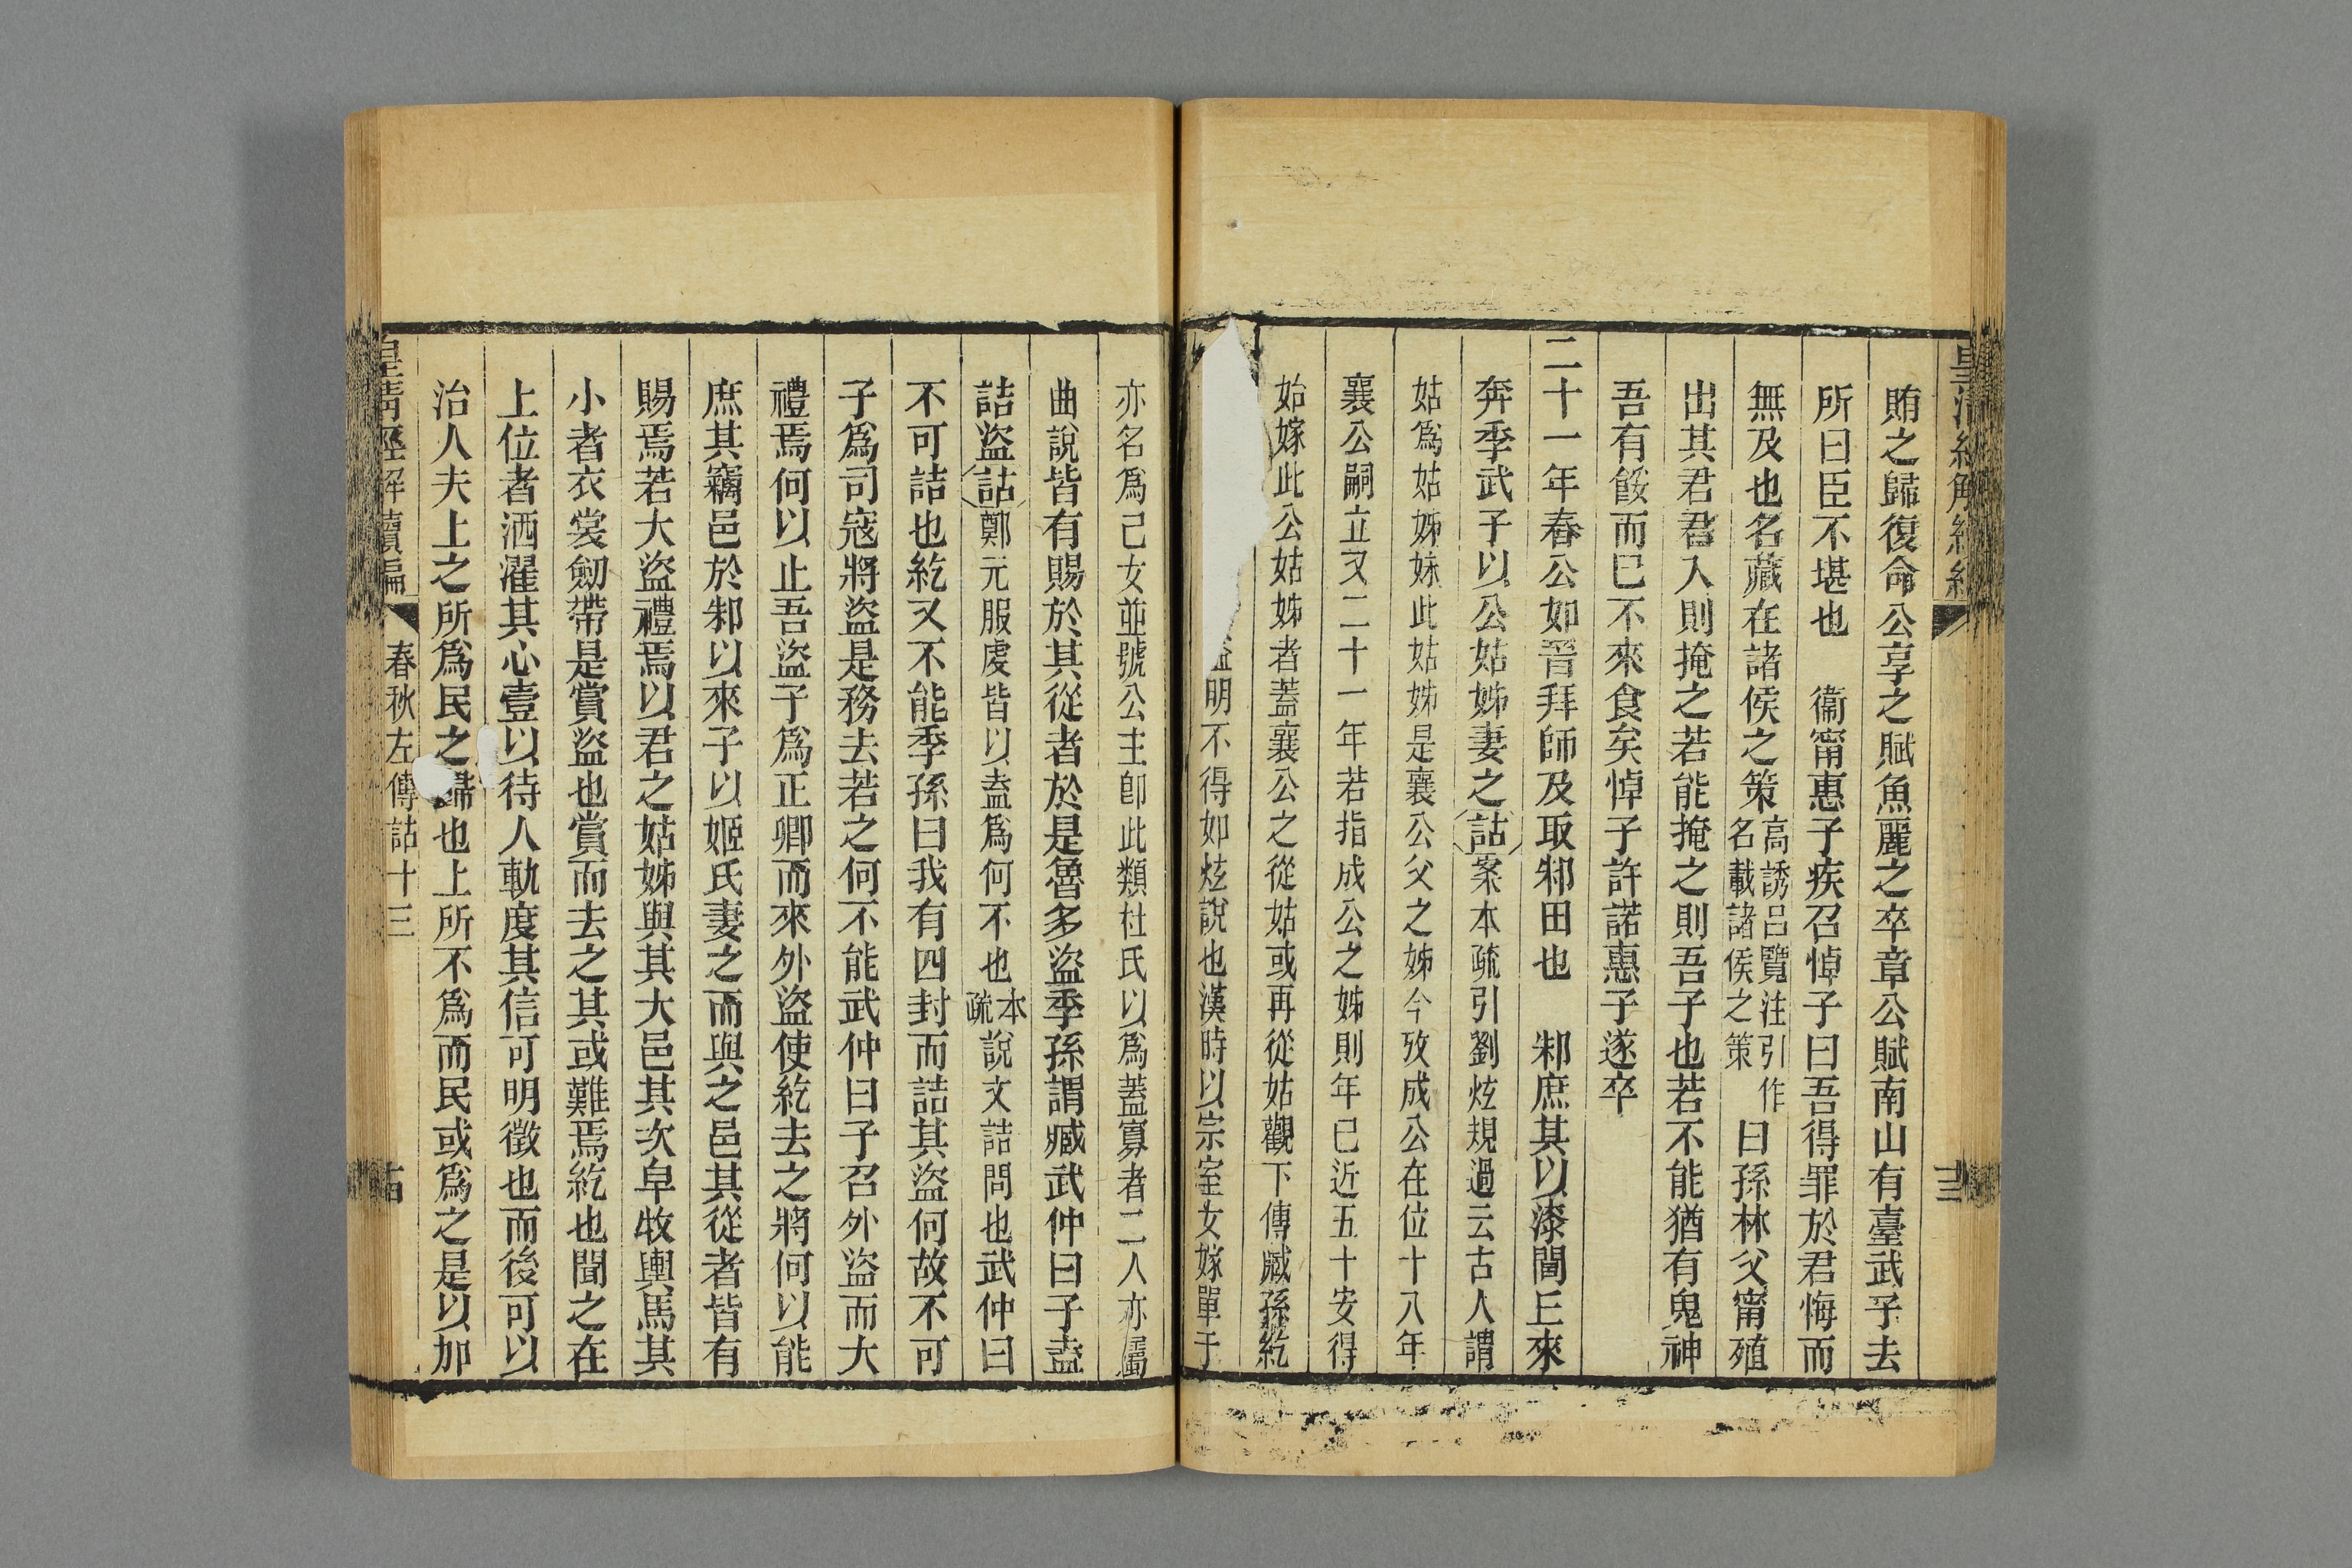 皇清經解續編
賄之歸復命公享之賦魚麗之卒章公賦南山有臺武子去
所曰臣不堪也　衞甯惠子疾召悼子曰吾得罪於君悔而
無及也名藏在諸侯之策高誘呂覽注引作名載諸侯之策曰孫林父甯殖
出其君君入則掩之若能掩之則吾子也若不能猶有鬼神
吾有餒而已不來食矣悼子許諾惠子遂卒
二十一年春公如晉拜師及取邾田也　邾庶其以漆閭丘來
奔季武子以公姑姊妻之詁案本疏引劉炫規過云古人謂
姑爲姑姊妹此姑姊是襄公父之姊今攷成公在位十八年
襄公嗣立又二十一年若指成公之姊則年已近五十安得
始嫁此公姑姊者蓋襄公之從姑或再從姑觀下傳臧孫紇
明不得如炫說也漢時以宗室女嫁單于
亦名爲己女並號公主卽此類杜氏以爲蓋寡者二人亦屬
曲說皆有賜於其從者於是魯多盜季孫謂臧武仲曰子盍
詰盜詁鄭元服虔皆以盍爲何不也本疏說文詰問也武仲曰
不可詰也紇又不能季孫曰我有四封而詰其盜何故不可
子爲司寇將盜是務去若之何不能武仲曰子召外盜而大
禮焉何以止吾盜子爲正卿而來外盜使紇去之將何以能
庶其竊邑於邾以來子以姬氏妻之而與之邑其從者皆有
賜焉若大盜禮焉以君之姑姊與其大邑其次皁牧輿馬其
小者衣裳劒帶是賞盜也賞而去之其或難焉紇也聞之在
上位者洒濯其心壹以待人軌度其信可明徵也而後可以
治人夫上之所爲民之歸也上所不爲而民或爲之是以加
皇淸經解續編　春秋左傳詁十三